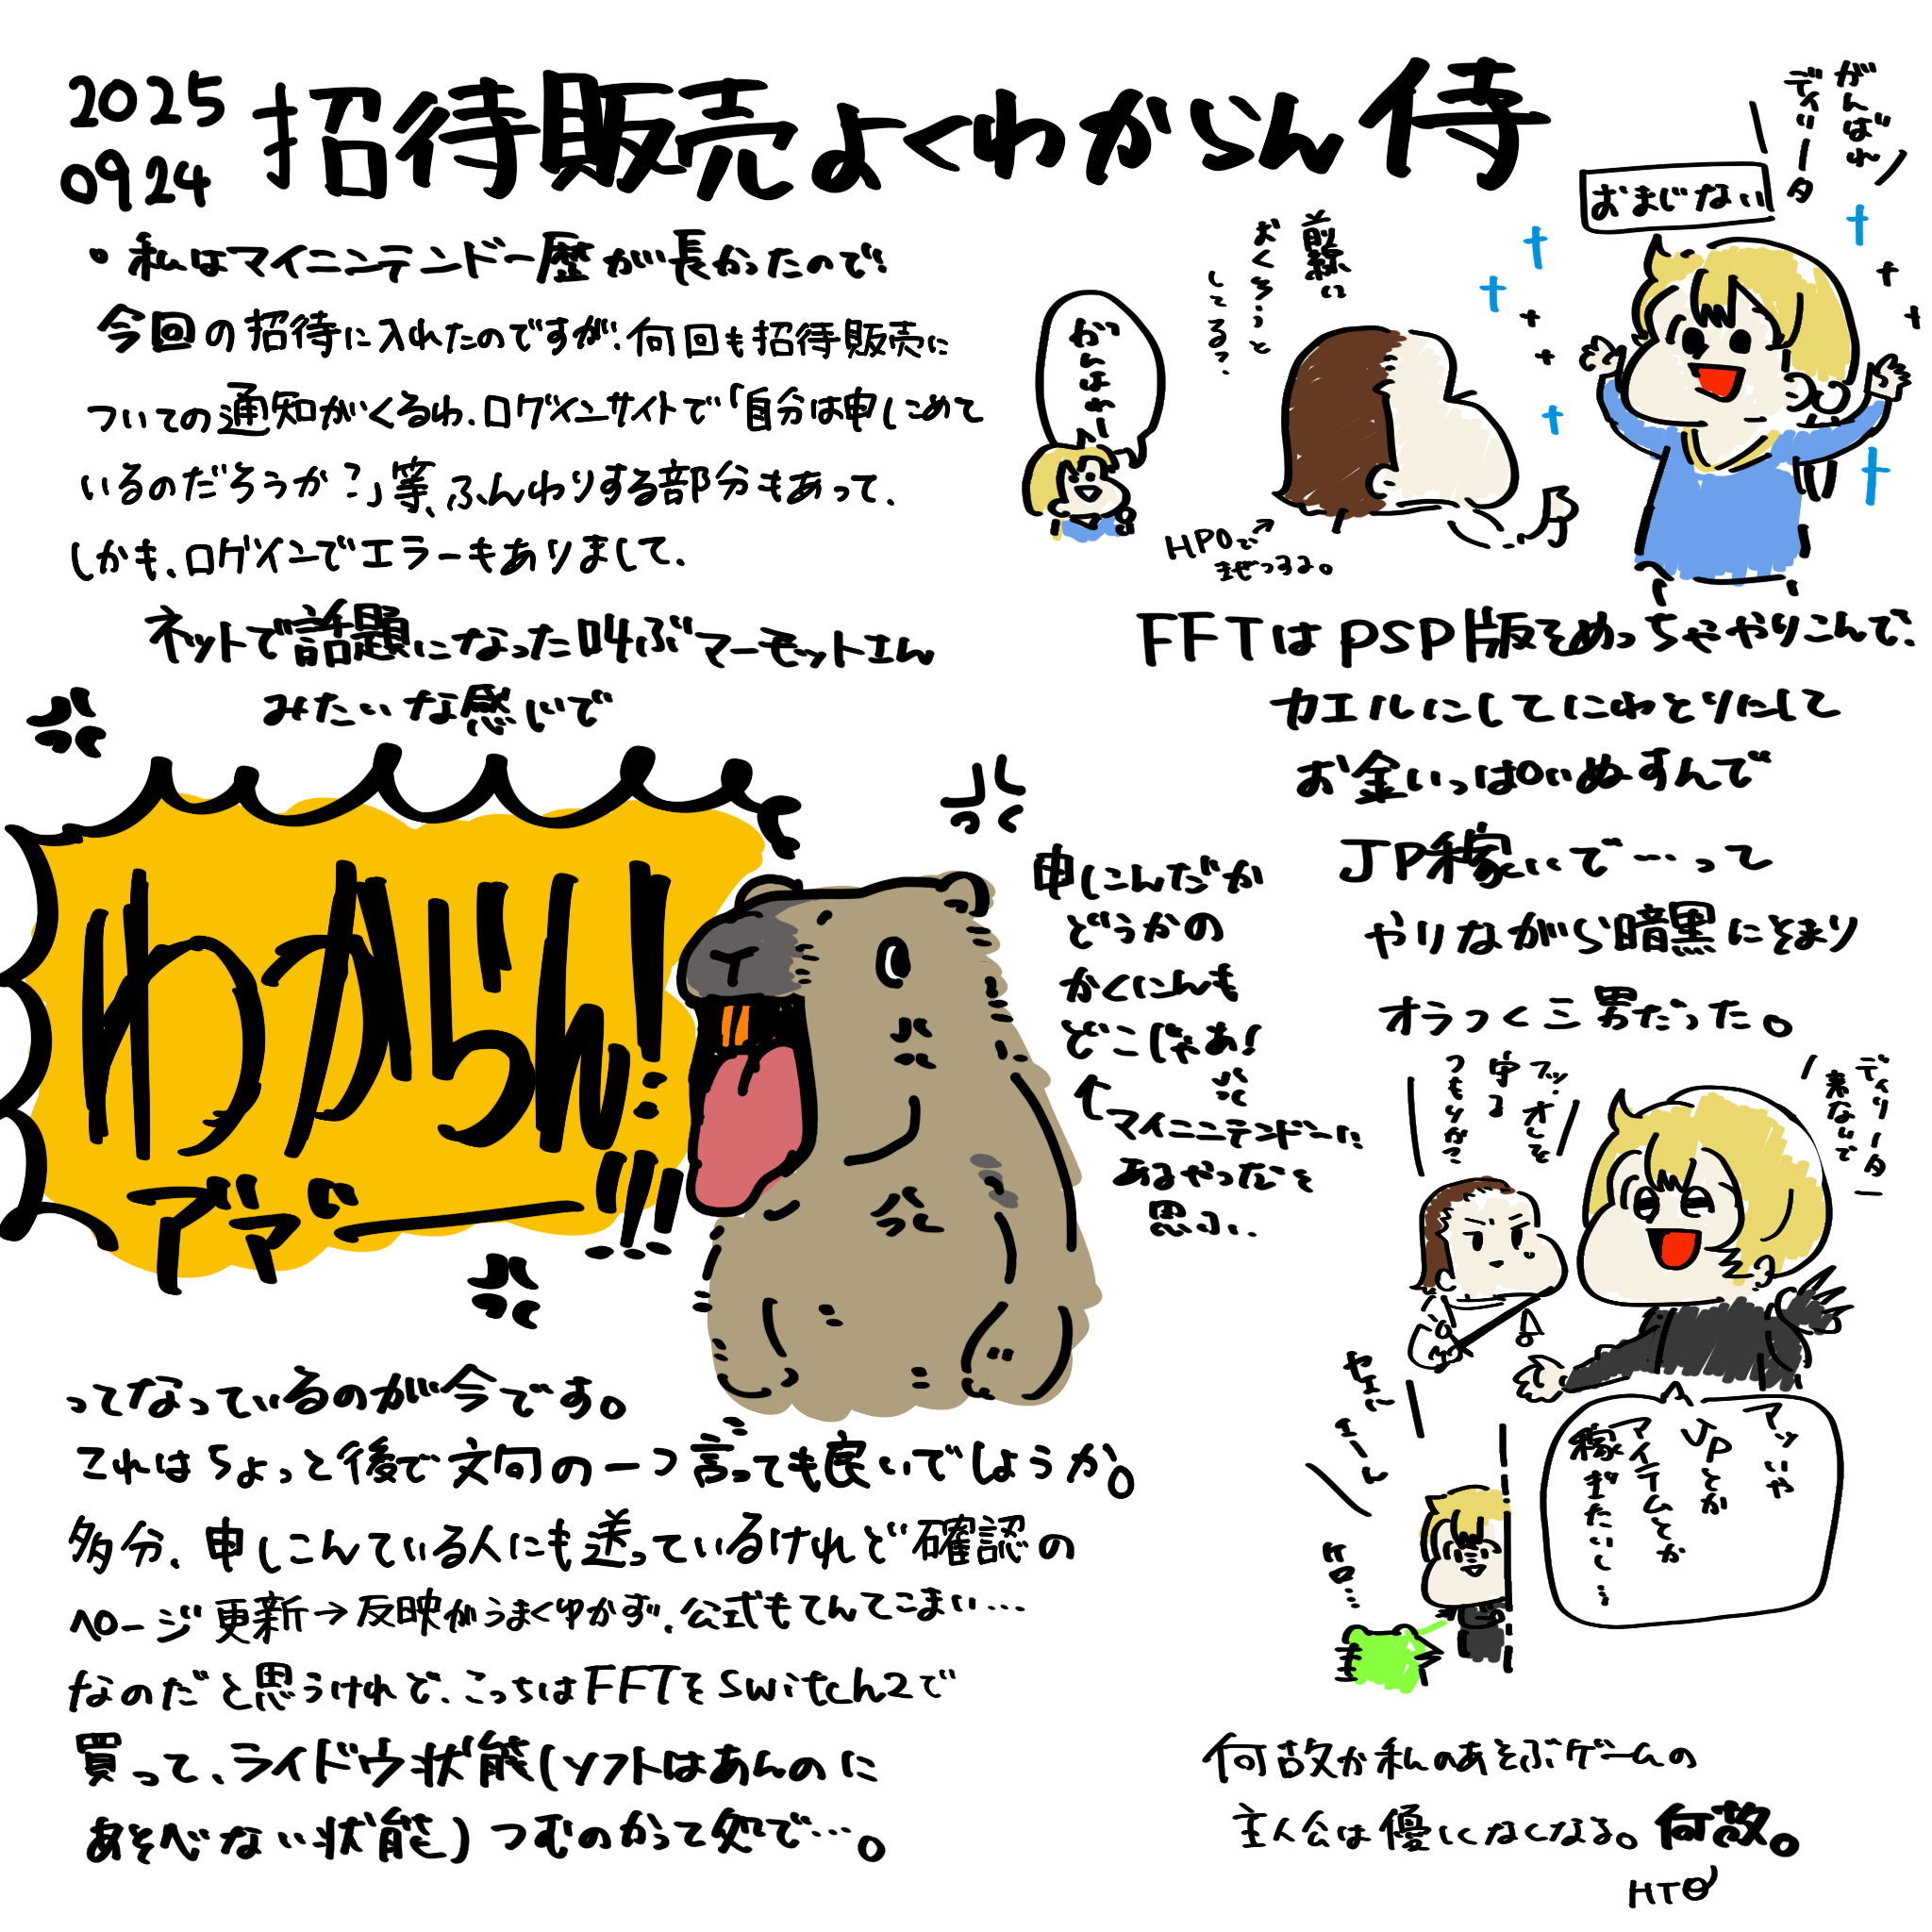 2025
0924
招待販売よくわからん侍
・私はマイニンテンドー歴が長かったので
今回の招待に入れたのですが、何回も招待販売に
ついての通知がくるわ、ログインサイトで「自分は申しこめて
いるのだろうか?」等、ふんわりする部分もあって、
しかも、ログインでエラーもありまして、
ネットで話題になった叫ぶマーモットさん
みたいな感じで
わからん!
デアー!!!
申しこんだか
どうかの
かくにんも
どこじゃあ!
↑マイニンテンドーに
あるやつだこを
思ふ、、
ってなっているのが今です。
これはちょっと後で文句の一つ言っても良いでしょうか。
多分、申しこんでいる人にも送っているけれど確認の
ページ更新→反映がうまくゆかず、公式もてんてこまい…
なのだと思うけれど、こっちはFFTをSwitch2で
買って、ライドウ状態(ソフトはあんのに
あそべない状態)つむのかって処で…。
がんばれ
ディリータ
おまじない
前線に
おくろうと
してる?
がんばれー
HP0で→
FFTはPSP版をめっちゃやりこんで、
カエルにしてにわとりにして
お金いっぱいぬすんで
JP稼いで…って
やりながら暗黒にそまり
オラつく三男だった。
ディリーター
来ないで
アッ、オレを
守る
つもりか?
アッいや
JPとか
アイテムとか
稼ぎたいし…
ケロ…
何故か私のあそぶゲームの
主人公は優しくなくなる。何故。
HTO